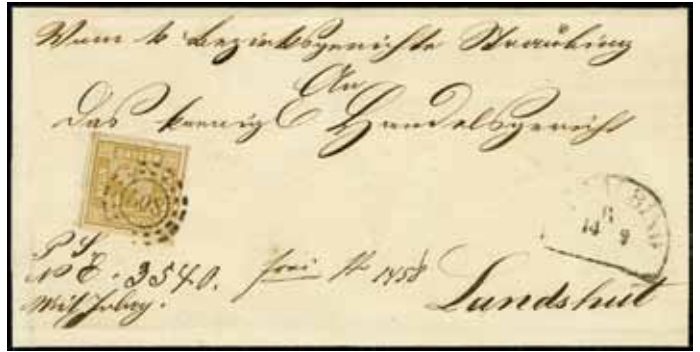 Vom k Bezirksgerichte Straubing
An
das koenig Handelsgericht
508
14 9
P. S.
N E. 3540.
frei N 1458
Landshut